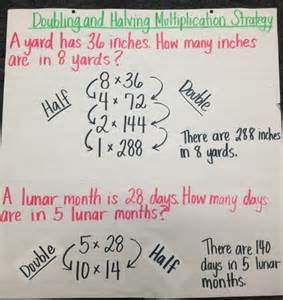 Doubling and Halving Multiplication Strategy
A yard has 36 inches. How many inches
are in 8 yards?
8 × 36
Half
Double
4 × 72
2 × 144
1 × 288
There are 288 inches
in 8 yards.
A lunar month is 28 days. How many days
are in 5 lunar months?
Double
5 × 28
Half
10 × 14
There are 140
days in 5 lunar
months.